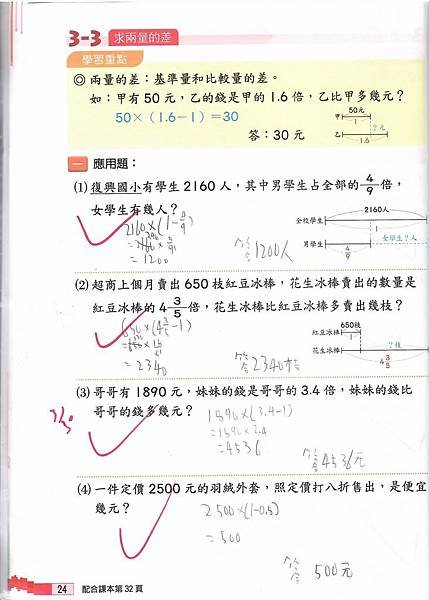 3-3 求兩量的差
學習重點
◎兩量的差:基準量和比較量的差。
如:甲有50元,乙的錢是甲的1.6倍,乙比甲多幾元?
50×(1.6-1)=30
答:30元
甲 50元 1
乙 ?元 1.6
一 應用題:
(1)復興國小有學生2160人,其中男學生占全部的4/9倍,
女學生有幾人?
2160×(1-4/9)
=1200
答1200人
2160人
全校學生 1
男學生 4/9 女學生?人
(2)超商上個月賣出650枝紅豆冰棒,花生冰棒賣出的數量是
紅豆冰棒的4 3/5倍,花生冰棒比紅豆冰棒多賣出幾枝?
650×(4 3/5-1)
=2340
答2340枝
650枝
紅豆冰棒 1
花生冰棒 ?枝
4 3/5
(3)哥哥有1890元,妹妹的錢是哥哥的3.4倍,妹妹的錢比
哥哥的錢多幾元?
1890×(3.4-1)
=1890×2.4
=4536
答4536元
(4)一件定價2500元的羽絨外套,照定價打八折售出,是便宜
幾元?
2500×(1-0.8)
=500
答500元
24 配合課本第32頁